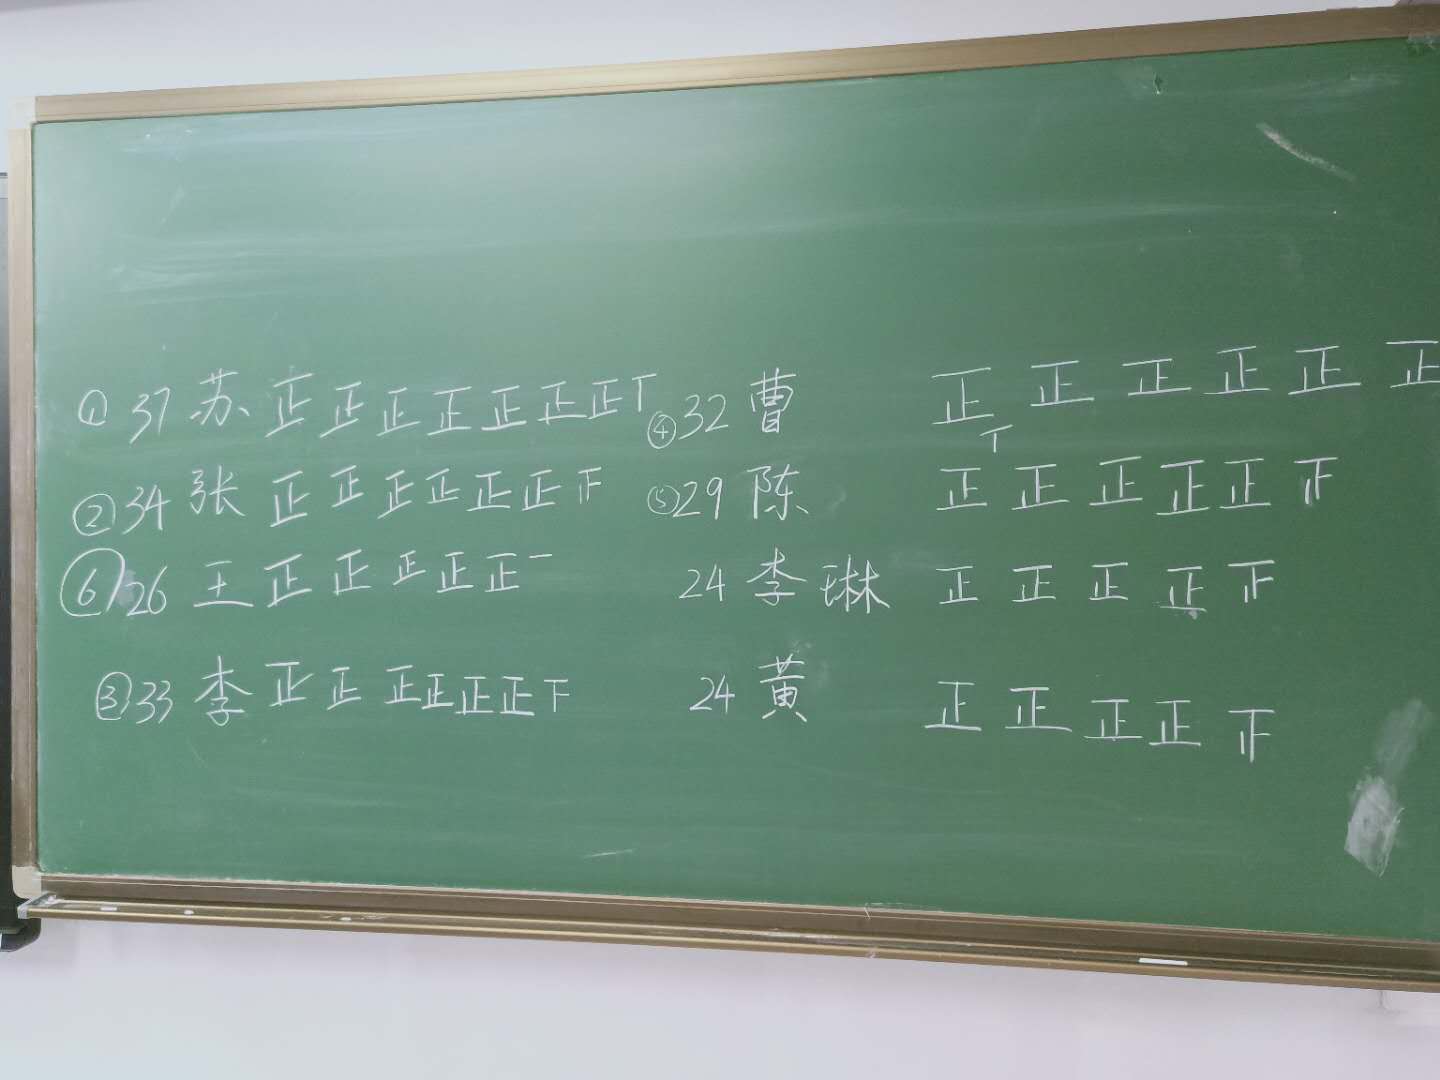 ① 37 苏 正 正 正 正 正 正 正 丅
② 34 张 正 正 正 正 正 正 𤴓
⑥ 26 王 正 正 正 正 正 一
③ 33 李 正 正 正 正 正 正 下
④ 32 曹 正 正 正 正 正 正
丅
⑤ 29 陈 正 正 正 正 正 𤴓
24 李琳 正 正 正 正 𤴓
24 黄 正 正 正 正 𤴓